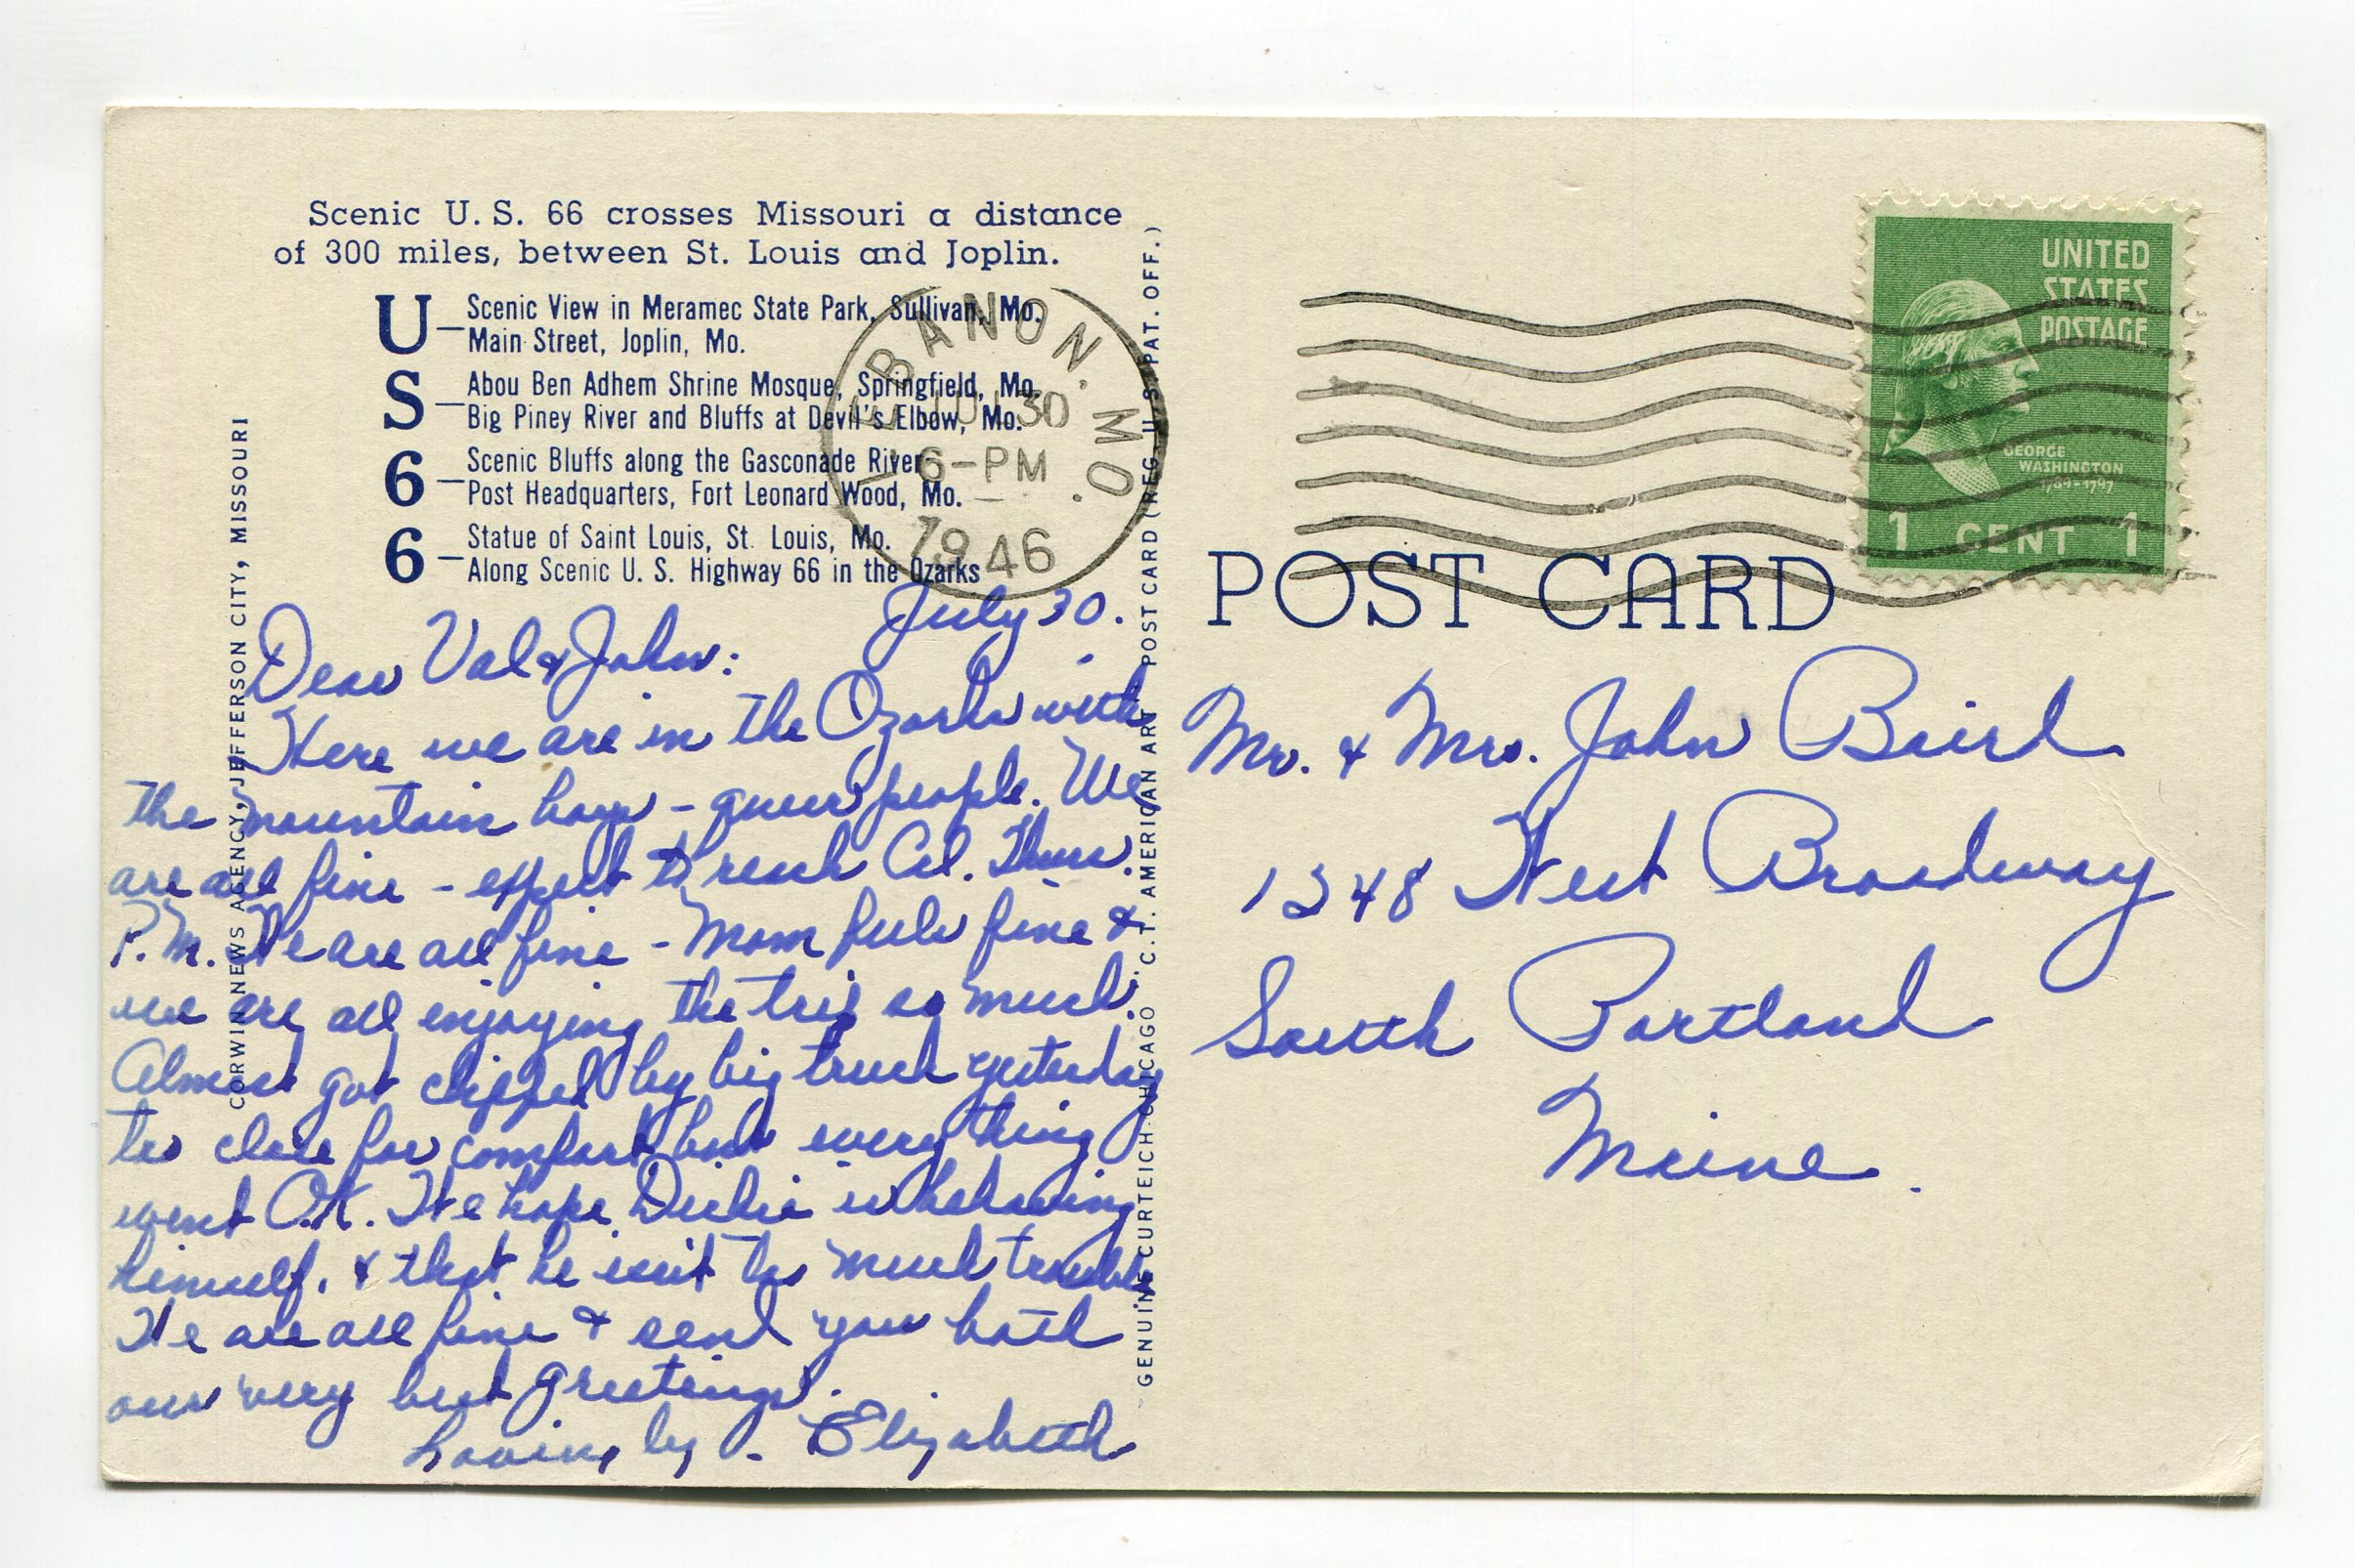 Scenic U. S. 66 crosses Missouri a distance
of 300 miles, between St. Louis and Joplin.
U — Scenic View in Meramec State Park, Sullivan, Mo.
Main Street, Joplin, Mo.
S — Abou Ben Adhem Shrine Mosque, Springfield, Mo.
Big Piney River and Bluffs at Devil's Elbow, Mo.
6 — Scenic Bluffs along the Gasconade River
Post Headquarters, Fort Leonard Wood, Mo.
6 — Statue of Saint Louis, St. Louis, Mo.
Along Scenic U. S. Highway 66 in the Ozarks
LEBANON. MO.
JUL 30
6-PM
1946
July 30.
Dear Val & John:
Here we are in the Ozarks with
the mountain boys - queer people. We
are all fine - expect to reach Cal. Thurs.
P.M. We are all fine - Mom feels fine &
we are all enjoying the trip so much.
Almost got clipped by big truck yesterday
too close for comfort but everything
went O.K. We hope Dickie is behaving
himself. & that he isn't too much trouble
We are all fine & send you both
our very best greetings.
Lovingly - Elizabeth
CORWIN NEWS AGENCY, JEFFERSON CITY, MISSOURI
GENUINE CURTEICH-CHICAGO "C.T. AMERICAN ART" POST CARD (REG. U.S. PAT. OFF.)
UNITED
STATES
POSTAGE
GEORGE
WASHINGTON
1789-1797
1 CENT 1
POST CARD
Mr. & Mrs. John Baird
1248 West Broadway
South Portland
Maine.